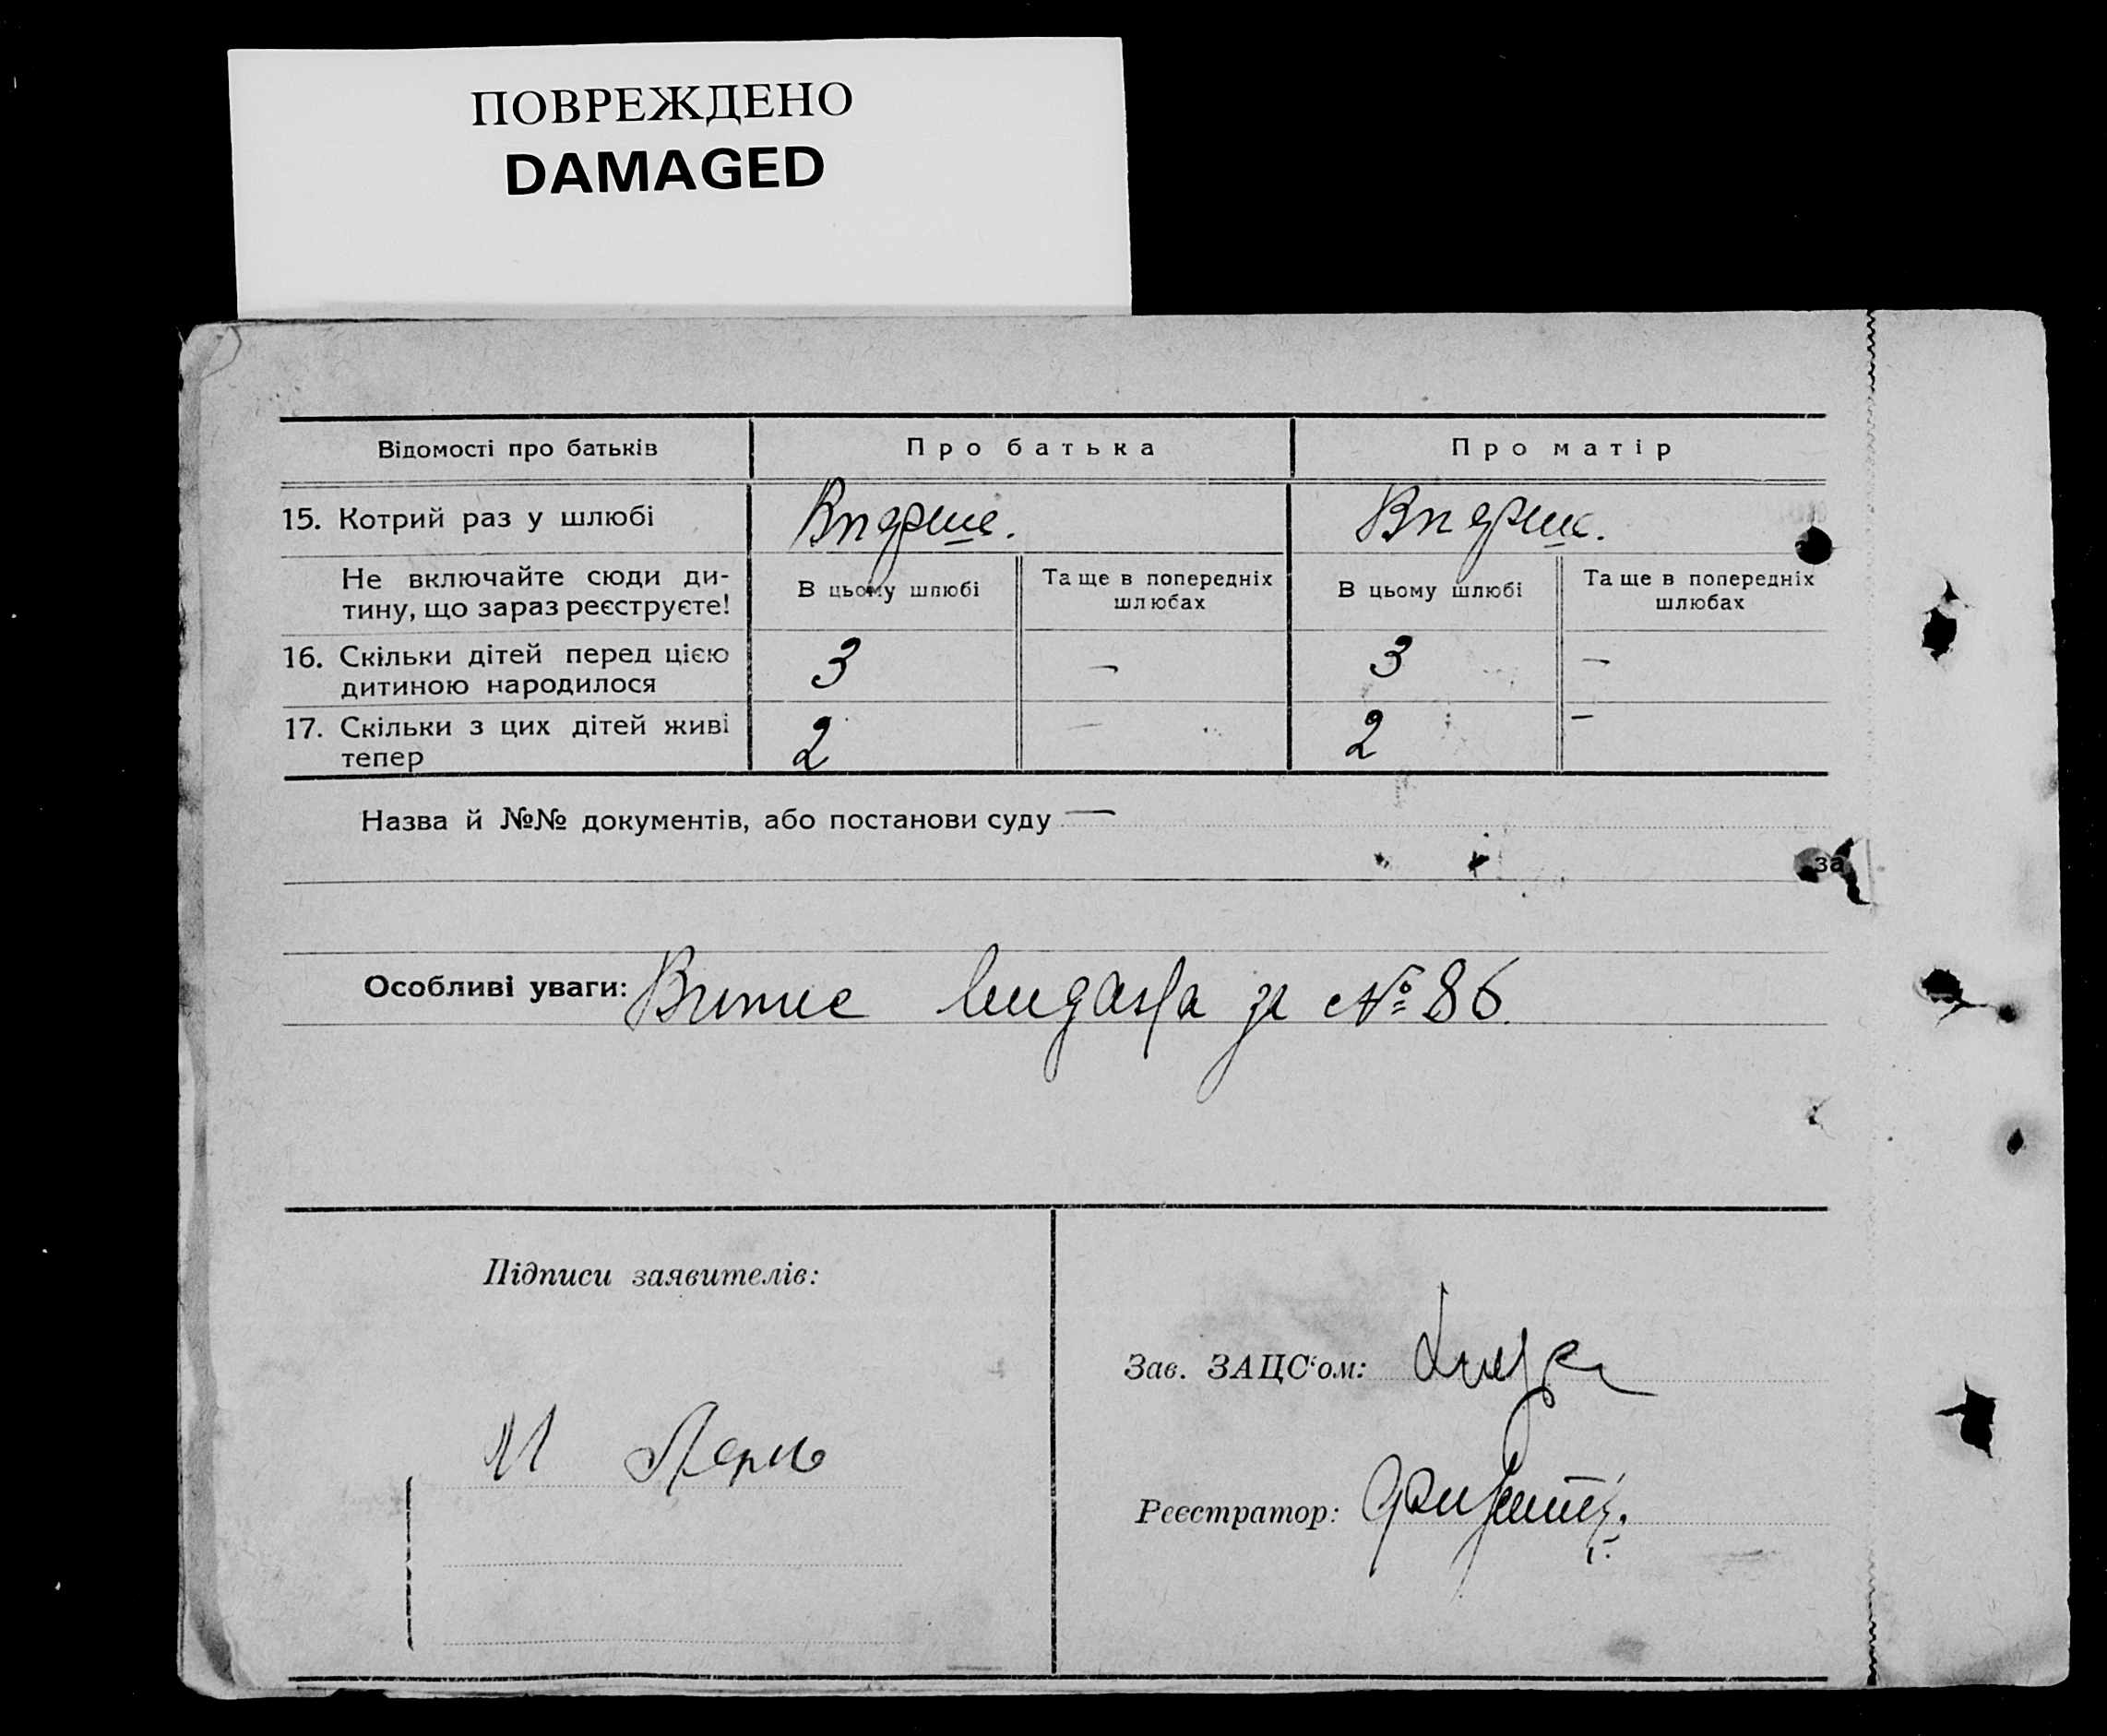 ПОВРЕЖДЕНО
DAMAGED
Відомості про батьків
Про батька
Про матір
15. Котрий раз у шлюбі
Вперше.
Вперше.
Не включайте сюди ди-
тину, що зараз реєструєте!
В цьому шлюбі
Та ще в попередніх
шлюбах
В цьому шлюбі
Та ще в попередніх
шлюбах
16. Скільки дітей перед цією
дитиною народилося
3
—
3
—
17. Скільки з цих дітей живі
тепер
2
—
2
—
Назва й №№ документів, або постанови суду —
за
Особливі уваги: Випис видана за № 86.
Підписи заявителів:
Зав. ЗАЦС'ом:
Реєстратор: